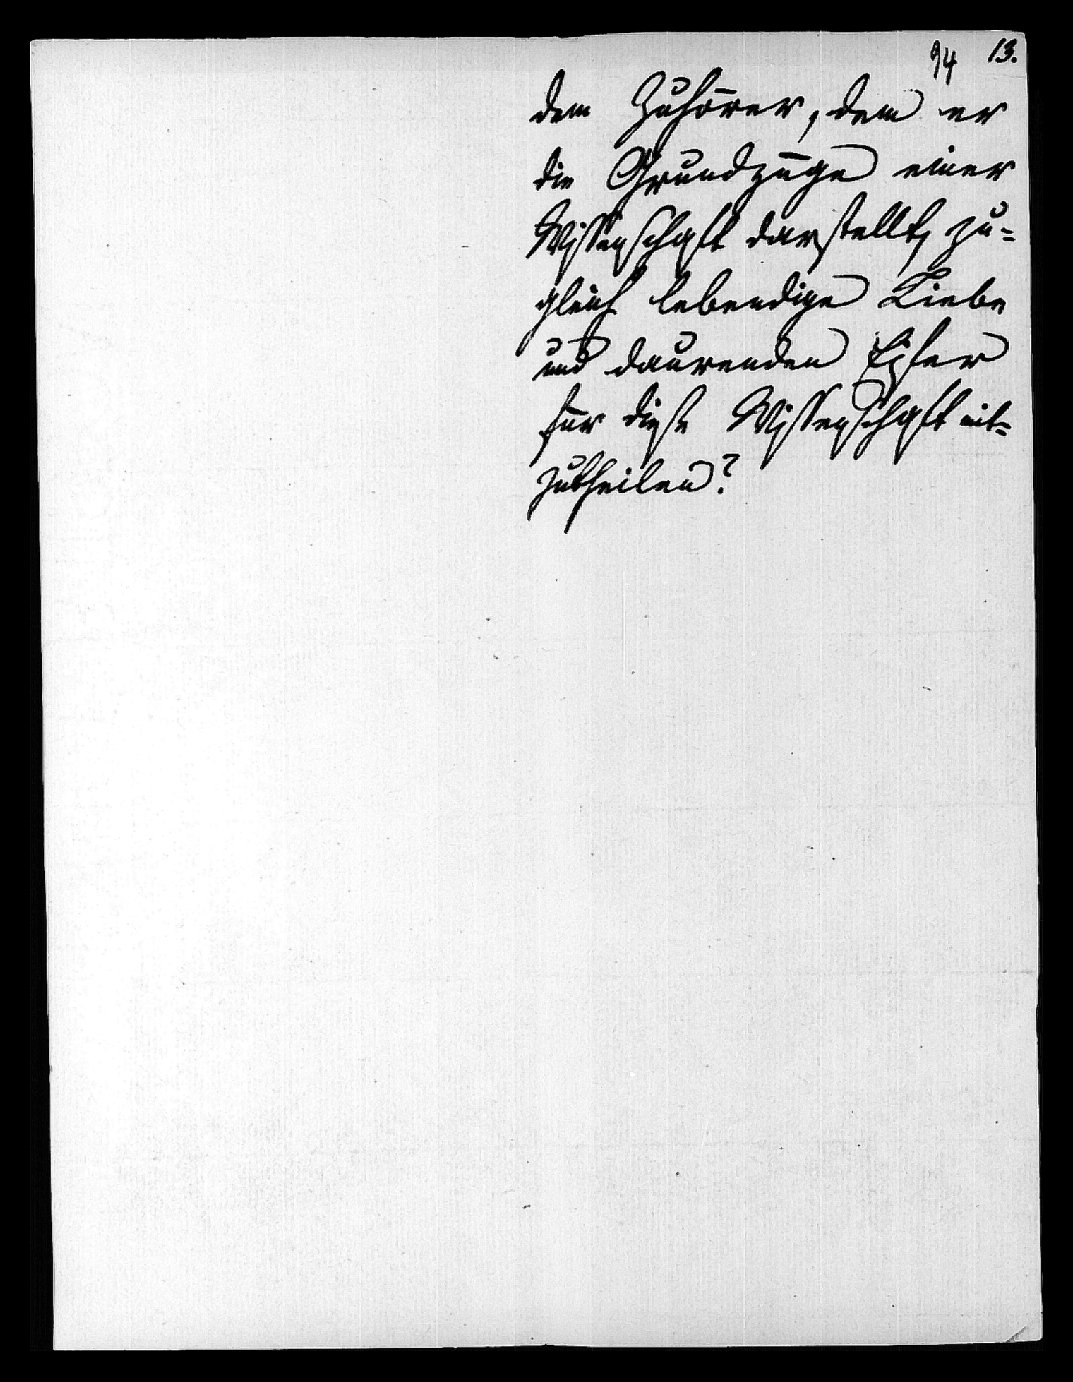 94 13.
dem Zuhörer, dem er
die Grundzüge einer
Wissenschaft darstellt, zu=
gleich lebendige Liebe
und daurenden Eifer
für diese Wissenschaft mit=
zutheilen?